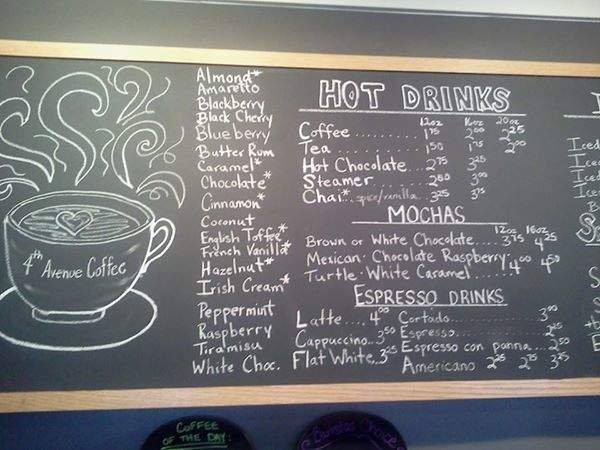 4th Avenue Coffee
Almond*
Amaretto
Blackberry
Black Cherry
Blueberry
Butter Rum
Caramel*
Chocolate*
Cinnamon*
Coconut
English Toffee*
French Vanilla*
Hazelnut*
Irish Cream*
Peppermint
Raspberry
Tiramisu
White Choc.
HOT DRINKS
12oz 16oz 20oz
Coffee ......... 1.75 2.00 2.25
Tea ......... 1.50 1.75 2.00
Hot Chocolate... 2.75 3.25
Steamer ......... 2.50 3.00
Chai.. spice/vanilla.. 3.25 3.75
MOCHAS
12oz 16oz
Brown or White Chocolate.... 3.75 4.25
Mexican · Chocolate Raspberry
Turtle · White Caramel..... 4.00 4.50
ESPRESSO DRINKS
Latte.... 4.00
Cappuccino.. 3.50
Flat White. 3.25
Cortado......... 3.00
Espresso.........
Espresso con panna...
Americano 2.25 2.75 3.25
Iced
Iced
Iced
Iced
COFFEE
OF THE DAY:
Baristas Choice